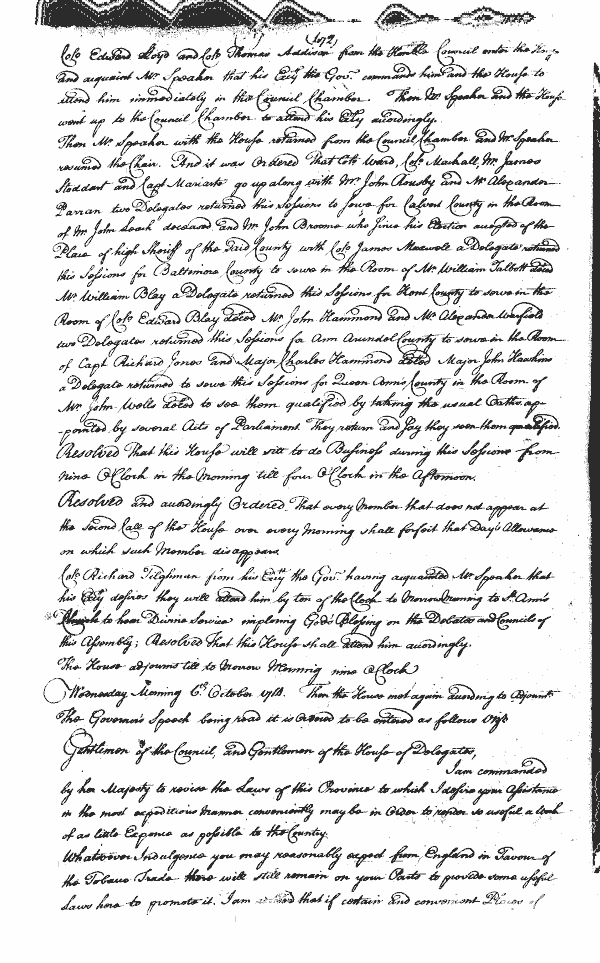 (472)
Colo Edward Lloyd and Colo Thomas Addison from the Honble Council enter the House
and acquaint Mr Speaker that his Excy the Govr commands him and the House to
attend him immediately in the Council Chamber. Then Mr Speaker and the House
went up to the Council Chamber to attend his Excy accordingly.
Then Mr Speaker with the House returned from the Council Chamber and Mr Speaker
resumed the Chair. And it was Ordered That Colo Ward, Colo Mackall, Mr James
Stoddart and Capt Mariarte go up along with Mr John Rousby and Mr Alexander
Parran two Delegates returned this Sessions to serve for Calvert County in the Room
of Mr John Leach deceased and Mr John Broome who since his Election accepted of the
Place of high Sheriff of the said County with Colo James Maxwell a Delegate returned
this Sessions for Baltemore County to serve in the Room of Mr William Talbott deced
Mr William Blay a Delegate returned this Sessions for Kent County to serve in the
Room of Colo Edward Blay deced Mr John Hammond and Mr Alexander Warfield
two Delegates returned this Sessions for Ann Arundel County to serve in the Room
of Capt Richard Jones and Major Charles Hammond deced Major John Hawkins
a Delegate returned to serve this Sessions for Queen Anns County in the Room of
Mr John Wells deced to see them qualified by taking the usual Oaths ap-
pointed by several Acts of Parliament. They return and say they seen them qualified.
Resolved That this House will sitt to do Business during this Sessions from
nine O Clock in the Morning till four O Clock in the Afternoon.
Resolved and accordingly Ordered. That every Member that does not appear at
the second Call of the House over every Morning shall forfeit that Day's Allowance
on which such Member disappears.
Colo Richard Tilghman from his Excy the Govr having acquainted Mr Speaker that
his Excy desires they will attend him by ten of the Clock to Morrow Morning to St Ann's
Church to hear Divine Service imploring God's Blessing on the Debates and Councils of
this Assembly; Resolved That this House shall attend him accordingly.
The House adjourns till to Morrow Morning nine O Clock
Wednesday Morning 6th October 1714. Then the House met again according to Adjournt
The Governor's Speech being read it is Ordered to be entered as follows Vizt
Gentlemen of the Council, and Gentlemen of the House of Delegates,
I am commanded
by her Majesty to revise the Laws of this Province to which I desire your Assistance
in the most expeditious Manner conveniently may be in Order to render so useful a Work
of as little Expence as possible to the Country.
Whatsoever Indulgence you may reasonably expect from England in Favour of
the Tobacco Trade there will still remain on your Parts to provide some useful
Laws here to promote it. I am that if certain and convenient Places of